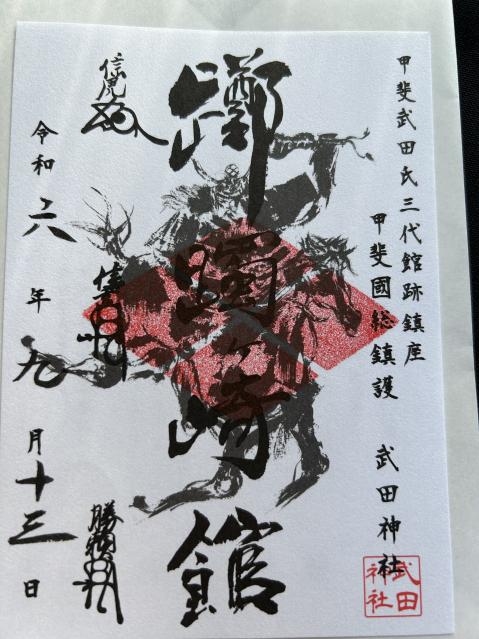 甲斐武田氏三代館跡鎮座
甲斐國総鎮護　武田神社
武田神社
躑躅ヶ崎館
信虎
信玄
勝頼
令和六年九月十三日